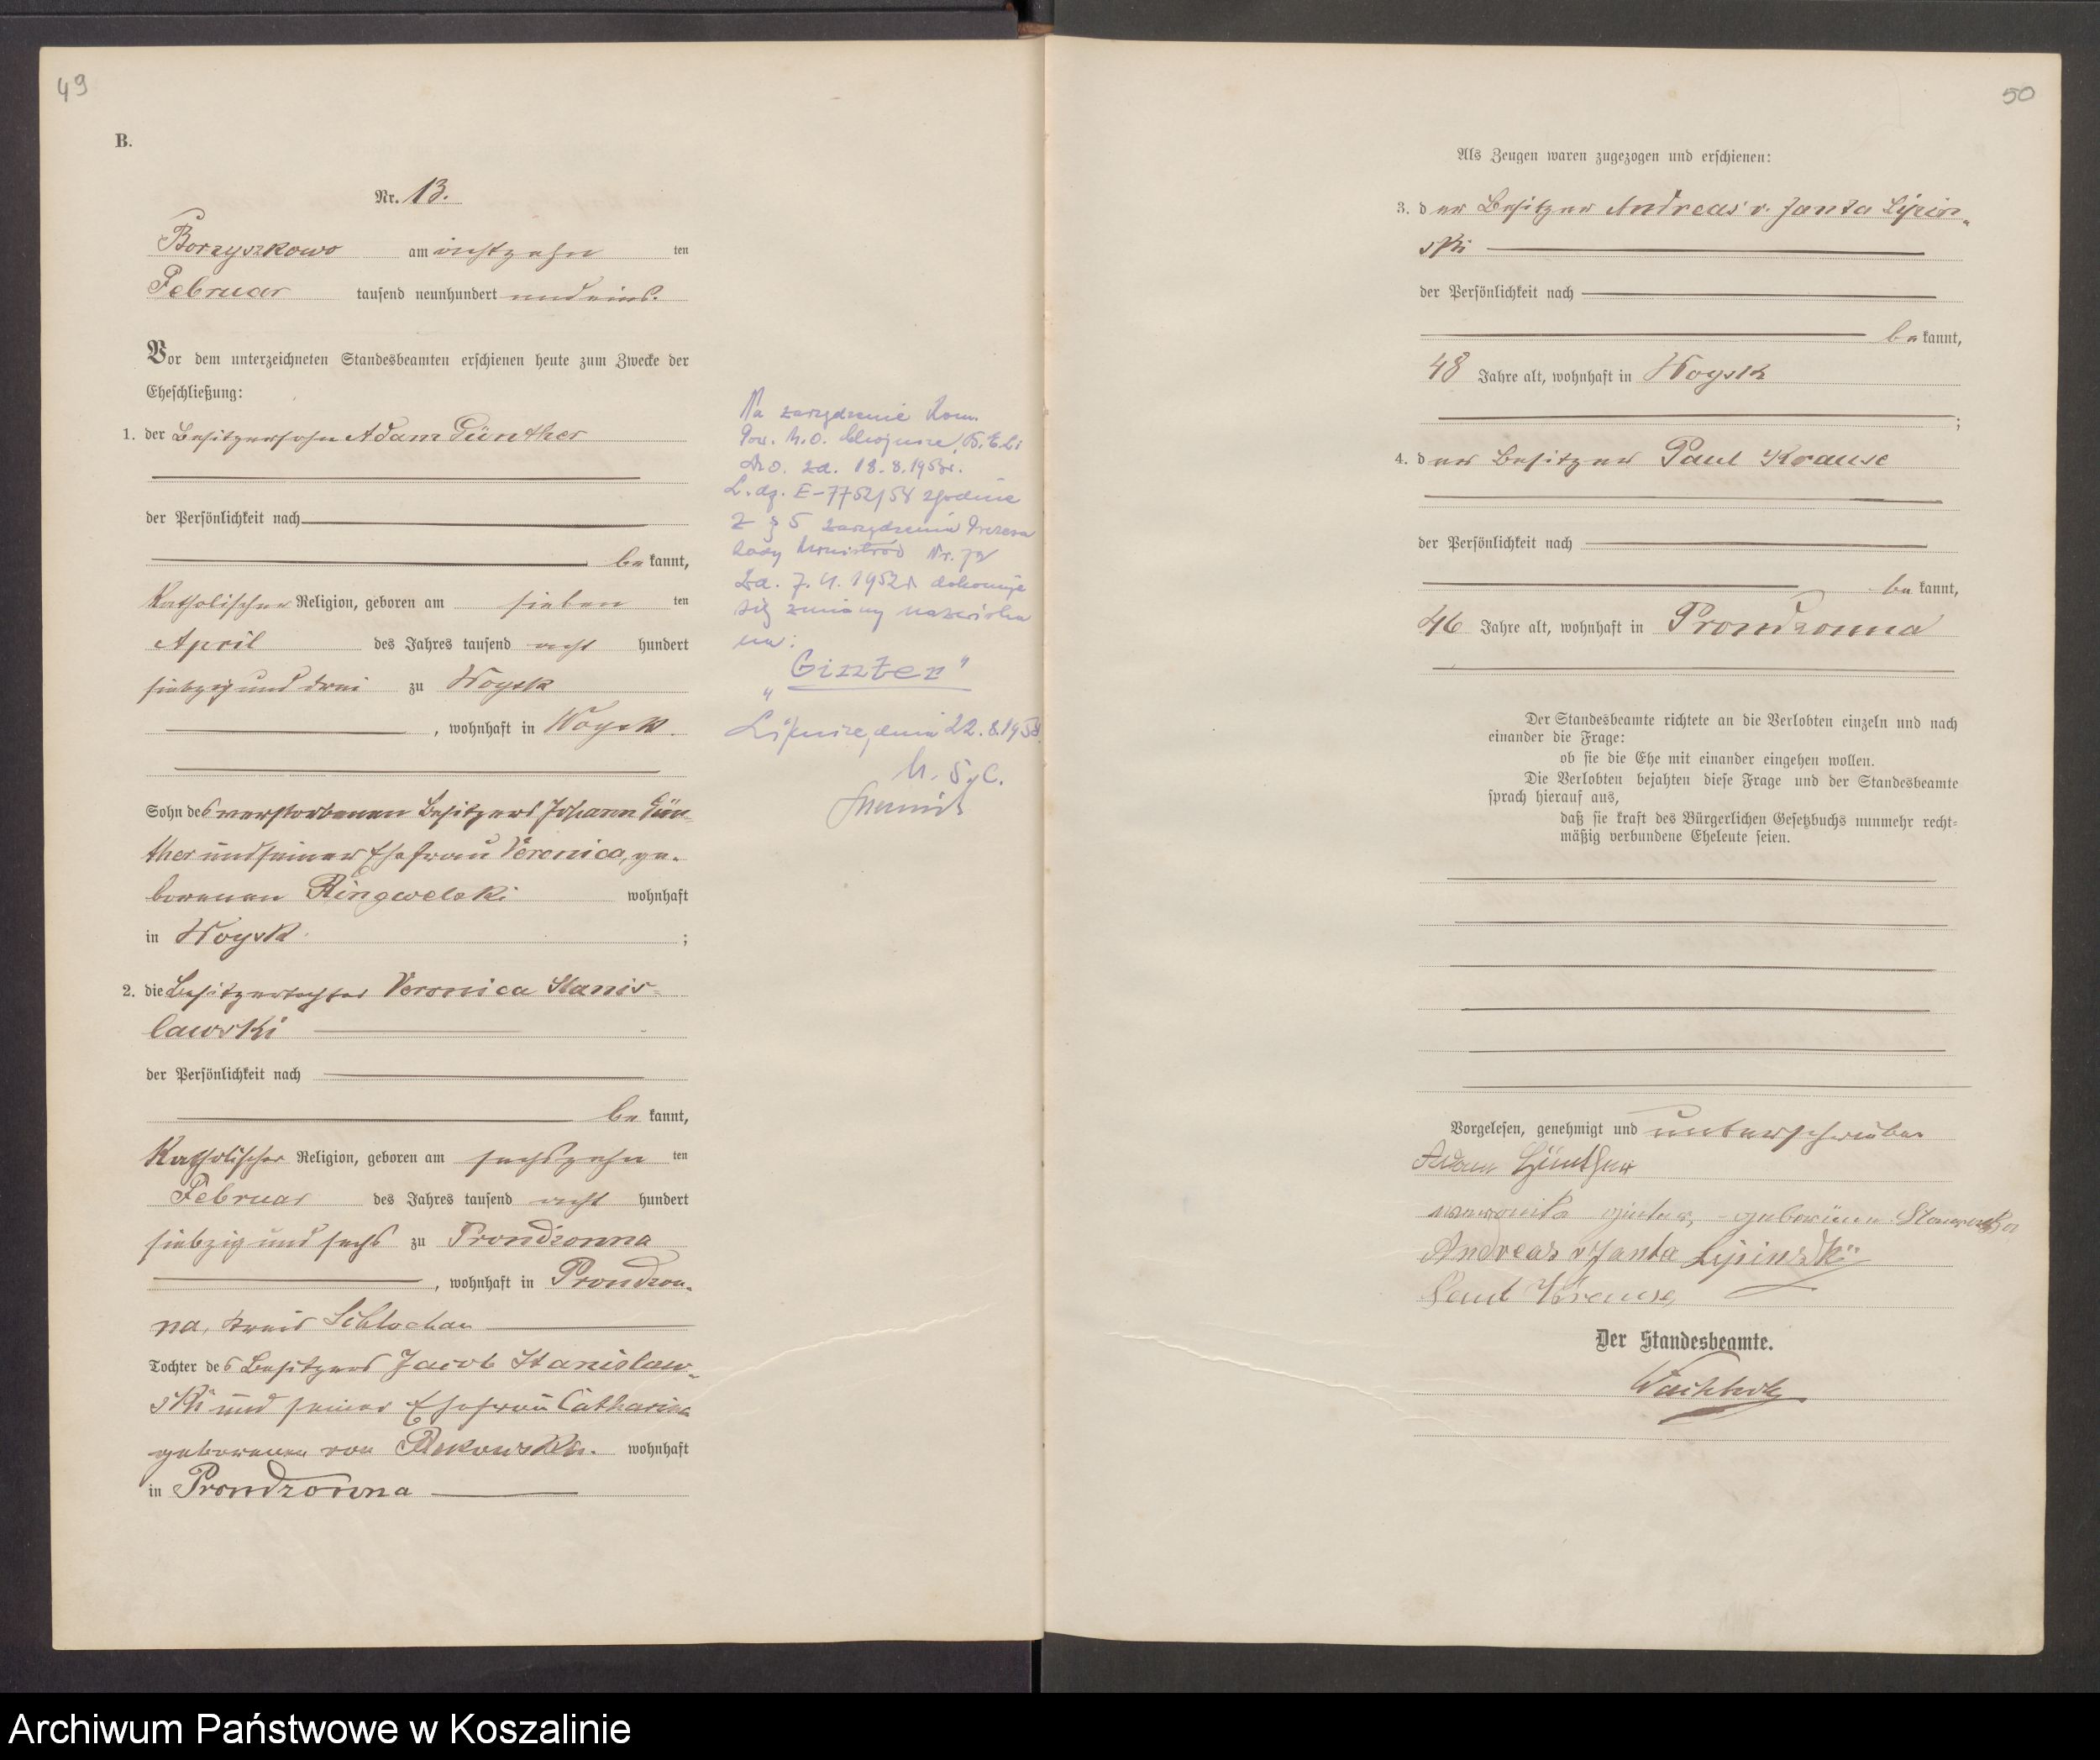 49
B.
Nr. 13.
Borzyszkowo am achtzehn ten
Februar tausend neunhundert und eins.
Vor dem unterzeichneten Standesbeamten erschienen heute zum Zwecke der
Eheschließung:
1. der Besitzersohn Adam Günther
der Persönlichkeit nach
be kannt,
Katholischer Religion, geboren am sieben ten
April des Jahres tausend acht hundert
siebzig und drei zu Woysk
, wohnhaft in Woysk.
Sohn des verstorbenen Besitzers Johann Gün-
ther und seiner Ehefrau Veronica, ge-
borenen Ringwelski wohnhaft
in Woysk ;
2. die Besitzertochter Veronica Stanis-
lawski
der Persönlichkeit nach
be kannt,
Katholischer Religion, geboren am sechszehn ten
Februar des Jahres tausend acht hundert
siebzig und sechs zu Prondzonna
, wohnhaft in Prondzon-
na, Kreis Schlochau
Tochter des Besitzers Jacob Stanislaw-
ski und seiner Ehefrau Catharina
geborenen von Rekowski. wohnhaft
in Prondzonna
Na zarządzenie Kom.
Pow. M.O. Chojnice
dn. 18.8.1958r.
L.dz. E-7752/58 zgodnie
z § 5 zarządzenia Prezesa
Rady Ministrów Nr.
1952r dokonuje
się zmiany nazwiska
na:
"Ginter"
Lipnica, dnia 22.8.1958
U.S.C.
50
Als Zeugen waren zugezogen und erschienen:
3. der Besitzer Andreas v. Janta Lipin-
ski
der Persönlichkeit nach
be kannt,
48 Jahre alt, wohnhaft in Woysk
;
4. der Besitzer Paul Krause
der Persönlichkeit nach
be kannt,
46 Jahre alt, wohnhaft in Prondzonna
Der Standesbeamte richtete an die Verlobten einzeln und nach
einander die Frage:
ob sie die Ehe mit einander eingehen wollen.
Die Verlobten bejahten diese Frage und der Standesbeamte
sprach hierauf aus,
daß sie kraft des Bürgerlichen Gesetzbuchs nunmehr recht-
mäßig verbundene Eheleute seien.
Vorgelesen, genehmigt und unterschrieben
Adam Günther
geborene
Andreas v Janta Lipinski
Paul Krause,
Der Standesbeamte.
Archiwum Państwowe w Koszalinie